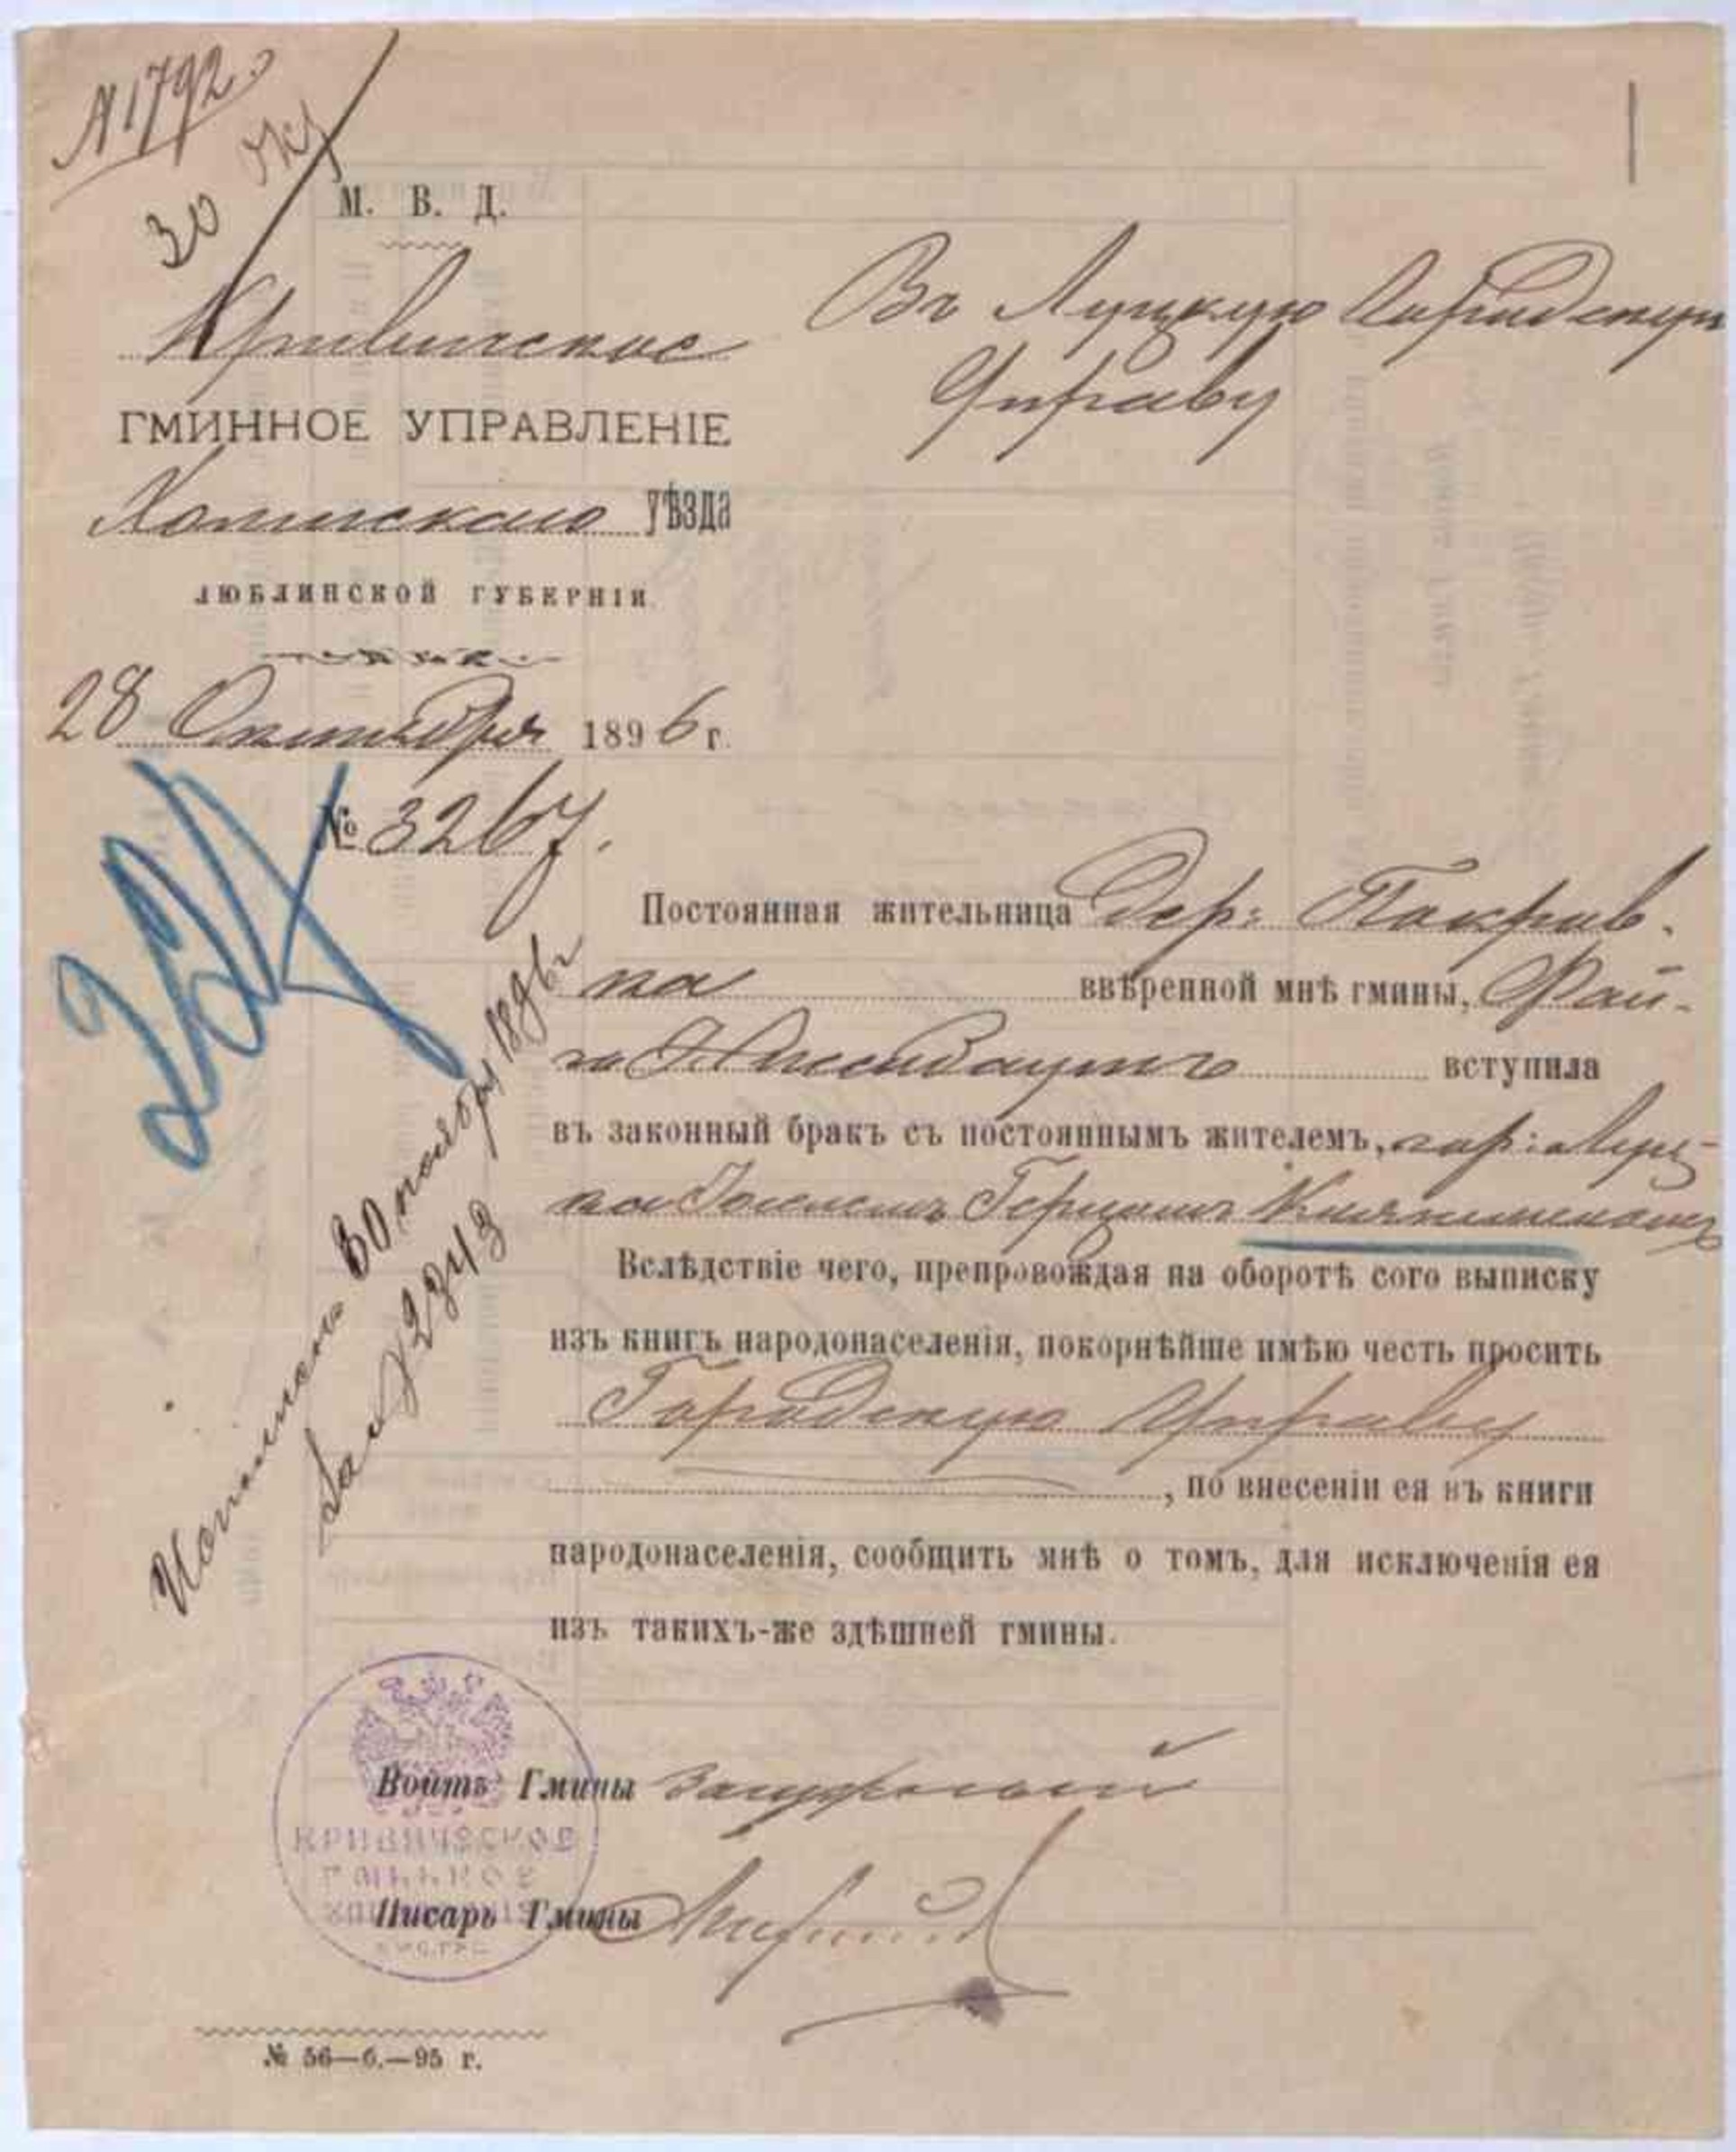 № 1792
30 Окт
М. В. Д.
Кривичское
ГМИННОЕ УПРАВЛЕНІЕ
Холмскаго УѢЗДА
ЛЮБЛИНСКОЙ ГУБЕРНІИ
28 Октября 1896 г.
№ 3267.
Въ Луцкую Городскую
Управу
Постоянная жительница дер: Покров-
ка ввѣренной мнѣ гмины, Фай-
га вступила
въ законный бракъ съ постояннымъ жителемъ, гор: Луц-
ка Герцомъ
Вслѣдствіе чего, препровождая на оборотѣ сого выписку
изъ книгъ народонаселенія, покорнѣйше имѣю честь просить
Городскую Управу
, по внесеніи ея въ книги
народонаселенія, сообщить мнѣ о томъ, для исключенія ея
изъ такихъ-же здѣшней гмины.
Исполнено 30 ноября 1896 г
за № 2243
Войтъ Гмины
Писарь Гмины
КРИВИЧСКОЕ
ГМИННОЕ
№ 56—б.—95 г.